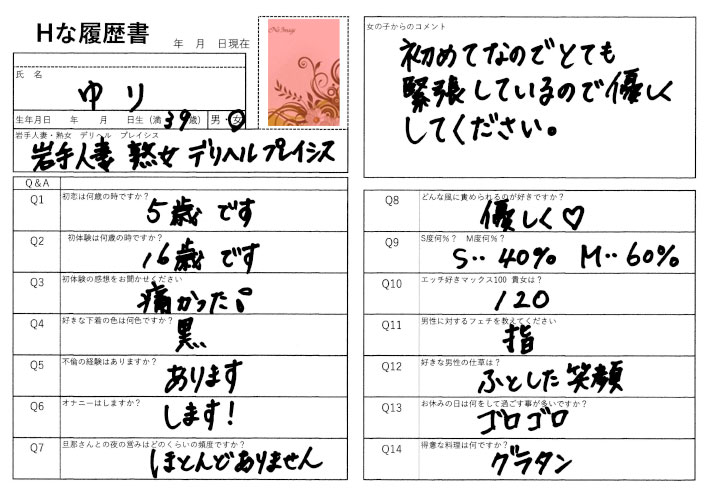 Hな履歴書
年 月 日現在
氏 名
ゆり
生年月日 年 月 日生（満39歳） 男・女
岩手人妻・熟女 デリヘル プレイシス
岩手人妻 熟女 デリヘルプレイシス
女の子からのコメント
初めてなのでとても
緊張しているので優しく
してください。
Q&A
Q1 初恋は何歳の時ですか？
5歳です
Q2 初体験は何歳の時ですか？
16歳です
Q3 初体験の感想をお聞かせください
痛かった
Q4 好きな下着の色は何色ですか？
黒
Q5 不倫の経験はありますか？
あります
Q6 オナニーはしますか？
します！
Q7 旦那さんとの夜の営みはどのくらいの頻度ですか？
ほとんどありません
Q8 どんな風に責められるのが好きですか？
優しく♡
Q9 S度何%？ M度何%？
S‥40% M‥60%
Q10 エッチ好きマックス100 貴女は？
120
Q11 男性に対するフェチを教えてください
指
Q12 好きな男性の仕草は？
ふとした笑顔
Q13 お休みの日は何をして過ごす事が多いですか？
ゴロゴロ
Q14 得意な料理は何ですか？
グラタン